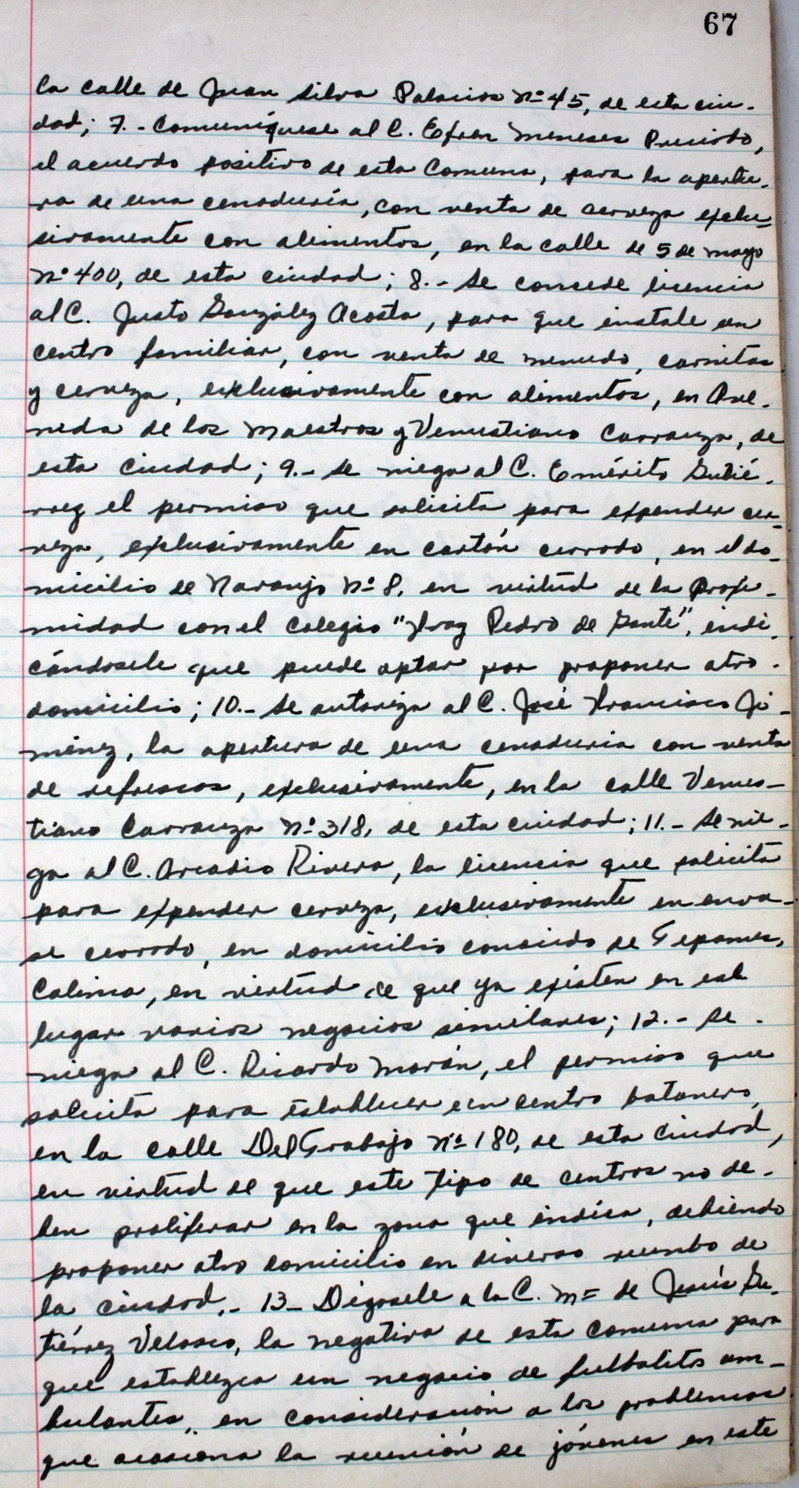 67
la calle de Juan Silva Palacios Nº 45, de esta ciu-
dad; 7.- Comuníquese al C. Efren Meneses Preciado,
el acuerdo positivo de esta Comuna, para la apertu-
ra de una cenaduría, con venta de cerveza exclu-
sivamente con alimentos, en la calle de 5 de mayo
Nº 400, de esta ciudad; 8.- Se concede licencia
al C. Justo González Acosta, para que instale un
centro familiar, con venta de menudo, carnitas
y cerveza, exclusivamente con alimentos, en Ave-
nida de los Maestros y Venustiano Carranza, de
esta ciudad; 9.- Se niega al C. Emérito Gutié-
rrez el permiso que solicita para expender cer-
veza, exclusivamente en cartón cerrado, en el do-
micilio de Naranjo Nº 8, en virtud de la proxi-
midad con el colegio "Fray Pedro de Gante", indi-
cándosele que puede optar por proponer otro
domicilio; 10.- Se autoriza al C. José Francisco Ji-
ménez, la apertura de una cenaduría con venta
de refrescos, exclusivamente, en la calle Venus-
tiano Carranza Nº 318, de esta ciudad; 11.- Se nie-
ga al C. Arcadio Rivera, la licencia que solicita
para expender cerveza, exclusivamente en enva-
se cerrado, en domicilio conocido de Tepames,
Colima, en virtud de que ya existen en ese
lugar varios negocios similares; 12.- Se
niega al C. Ricardo Morán, el permiso que
solicita para establecer un centro botanero,
en la calle Del Trabajo Nº 180, de esta ciudad,
en virtud de que este tipo de centros no de-
ben proliferar en la zona que indica, debiendo
proponer otro domicilio en diverso rumbo de
la ciudad.- 13- Dígasele a la C. Mª de Jesús Gu-
tiérrez Velasco, la negativa de esta comuna para
que establezca un negocio de futbolitos am-
bulantes, en consideración a los problemas
que ocasiona la reunión de jóvenes en este